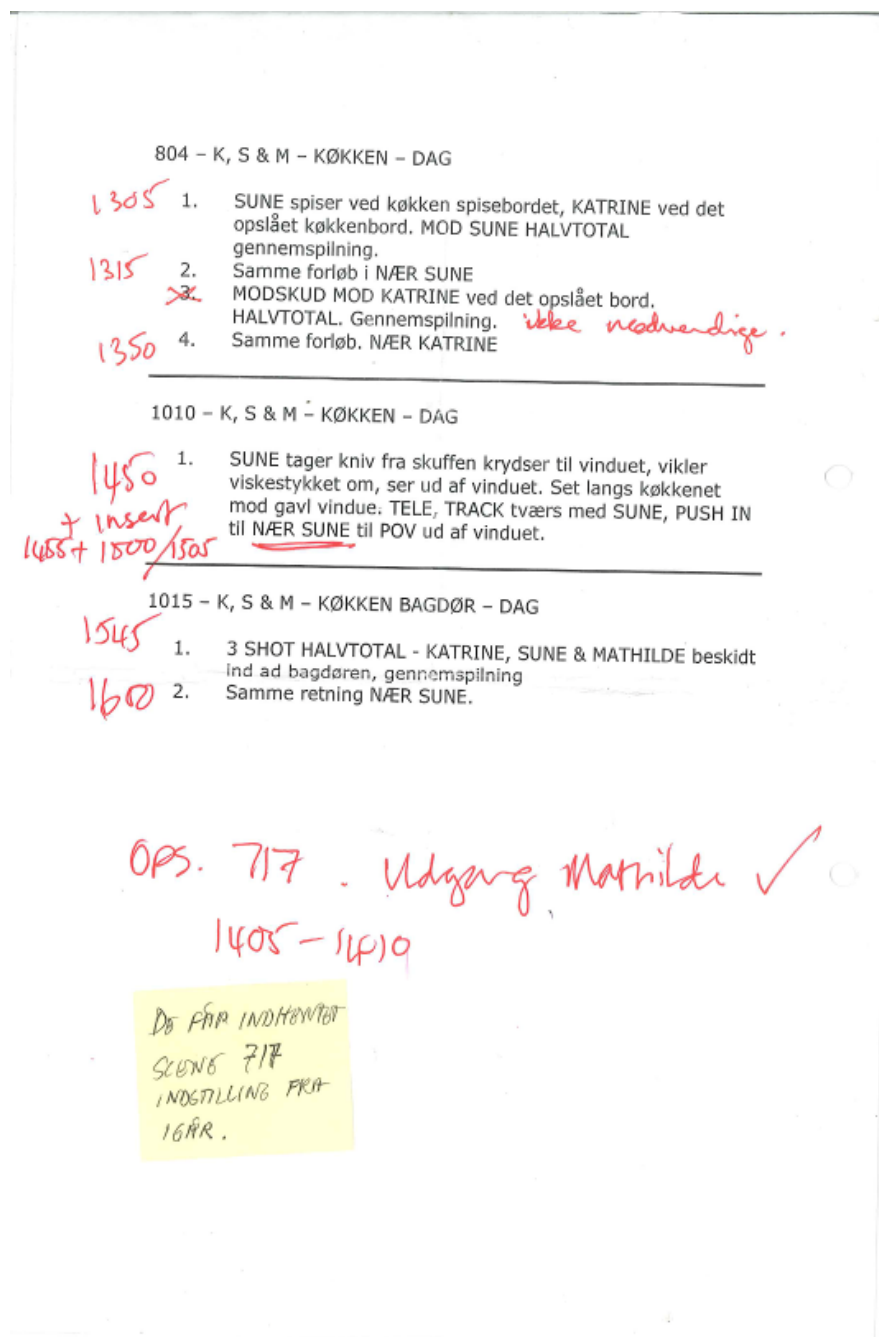 804 – K, S & M – KØKKEN – DAG
1305 1. SUNE spiser ved køkken spisebordet, KATRINE ved det
opslået køkkenbord. MOD SUNE HALVTOTAL
gennemspilning.
1315 2. Samme forløb i NÆR SUNE
3. MODSKUD MOD KATRINE ved det opslået bord.
HALVTOTAL. Gennemspilning. ikke nødvendige.
1350 4. Samme forløb. NÆR KATRINE
1010 – K, S & M – KØKKEN – DAG
1450 1. SUNE tager kniv fra skuffen krydser til vinduet, vikler
viskestykket om, ser ud af vinduet. Set langs køkkenet
+ insert mod gavl vindue. TELE, TRACK tværs med SUNE, PUSH IN
1455+ 1500/1505 til NÆR SUNE til POV ud af vinduet.
1015 – K, S & M – KØKKEN BAGDØR – DAG
1545 1. 3 SHOT HALVTOTAL - KATRINE, SUNE & MATHILDE beskidt
ind ad bagdøren, gennemspilning
1600 2. Samme retning NÆR SUNE.
OPS. 717. Udgang Mathilde ✓
1405–1410
DE FÅR INDHENTET
SCENE 717
INDSTILLING FRA
IGÅR.